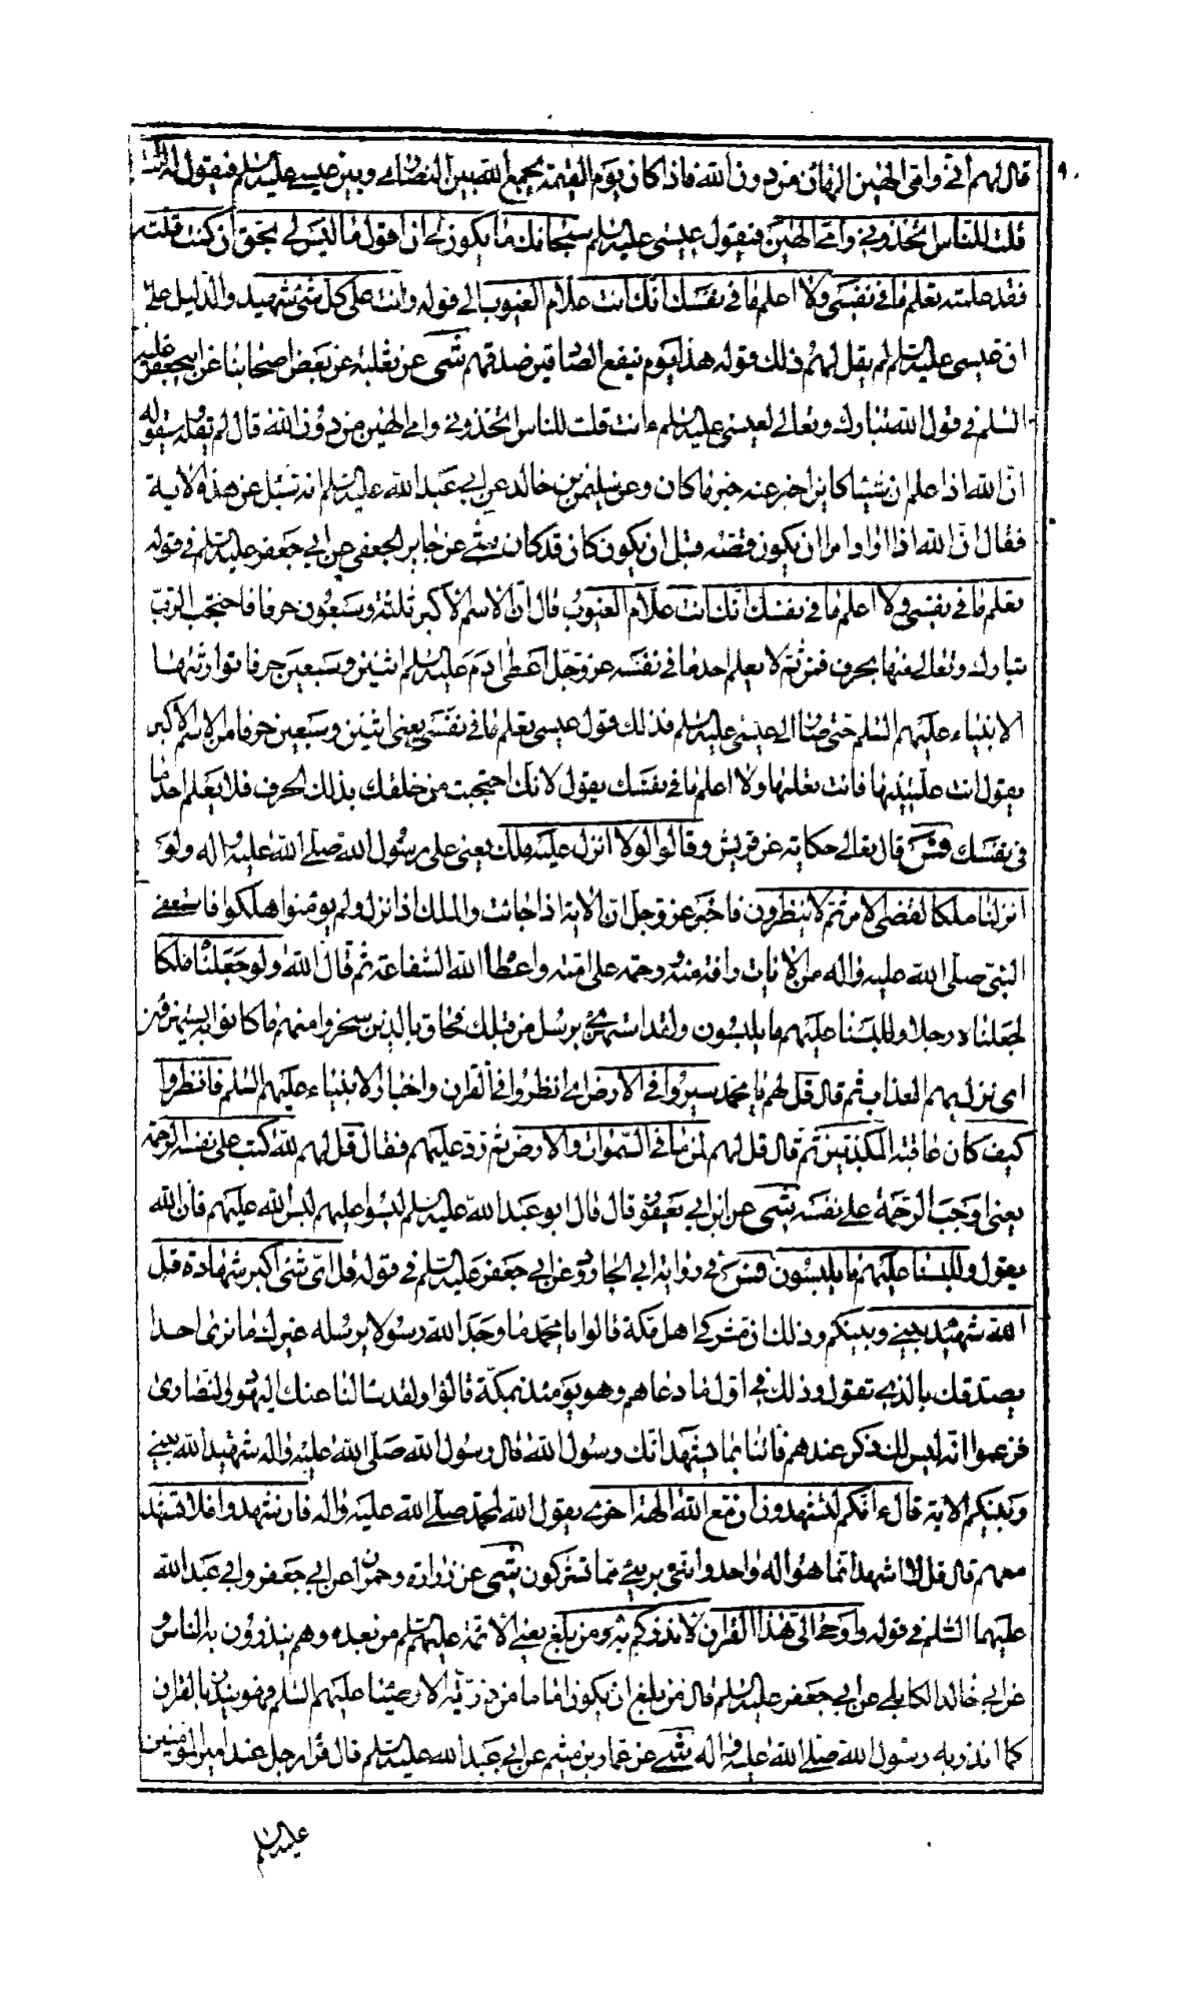 قال لهم اني وامي الهين الهان من دون الله فاذا كان يوم القيمة يجمع الله بين النصارى وبين عيسى عليه السلم فيقول له ءانت
قلت للناس اتخذوني وامي الهين فيقول عيسى عليه السلم سبحانك ما يكون لي ان اقول ما ليس لي بحق ان كنت قلته
فقد علمته تعلم ما في نفسي ولا اعلم ما في نفسك انك انت علام الغيوب الى قوله وانت على كل شئ شهيد والدليل على
ان عيسى عليه السلم لم يقل لهم ذلك قوله هذا يوم ينفع الصادقين صدقهم شى عن ثعلبة عن بعض اصحابنا عن ابي جعفر عليه
السلم في قول الله تبارك وتعالى لعيسى عليه السلم ءانت قلت للناس اتخذوني وامي الهين من دون الله قال لم يقله سيقوله
ان الله اذا علم ان شيئا كاين اخبر عنه خبر ما كان وعن سليمن بن خالد عن ابي عبد الله عليه السلم انه سئل عن هذه الاية
فقال ان الله اذا اراد امرا ان يكون قصه قبل ان يكون كان قد كان شى عن جابر الجعفي عن ابي جعفر عليه السلم في قوله
تعلم ما في نفسي ولا اعلم ما في نفسك انك انت علام الغيوب قال ان الاسم الاكبر ثلثة وسبعون حرفا فاحتجب الرب
تبارك وتعالى منها بحرف فمن ثم لا يعلم احد ما في نفسه عز وجل اعطى ادم عليه السلم اثنين وسبعين حرفا توارثتها
الانبياء عليهم السلم حتى صار الى عيسى عليه السلم فذلك قول عيسى تعلم ما في نفسي يعني اثنين وسبعين حرفا من الاسم الاكبر
يقول انت علمتنيها فانت تعلمها ولا اعلم ما في نفسك يقول لانك احتجبت من خلقك بذلك الحرف فلا يعلم احد ما
في نفسك فس قال تعالى حكاية عن قريش وقالوا لولا انزل عليه ملك يعني على رسول الله صلى الله عليه واله ولو
انزلنا ملكا لقضي الامر ثم لا ينظرون فاخبر عز وجل ان الاية اذا جائت والملك اذا نزل ولم يؤمنوا هلكوا فاستعفى
النبي صلى الله عليه واله من الايات رافة منه ورحمة على امته واعطاه الله الشفاعة ثم قال الله ولو جعلناه ملكا
لجعلناه رجلا وللبسنا عليهم ما يلبسون ولقد استهزئ برسل من قبلك فحاق بالذين سخروا منهم ما كانوا به يستهزؤن
اي نزل بهم العذاب ثم قال قل لهم يا محمد سيروا في الارض اي انظروا في القرآن واخبار الانبياء عليهم السلم فانظروا
كيف كان عاقبة المكذبين ثم قال قل لهم لمن ما في السموات والارض ثم رد عليهم فقال قل لهم لله كتب على نفسه الرحمة
يعني اوجب الرحمة على نفسه شى عن ابن ابي يعفور قال قال ابو عبد الله عليه السلم لبسوا عليهم لبس الله عليهم فان الله
يقول وللبسنا عليهم ما يلبسون فس في رواية ابي الجارود عن ابي جعفر عليه السلم في قوله قل اي شئ اكبر شهادة قل
الله شهيد بيني وبينكم وذلك ان مشركي اهل مكة قالوا يا محمد ما وجد الله رسولا يرسله غيرك ما نرى احدا
يصدقك بالذي تقول وذلك في اول ما دعاهم وهو يومئذ بمكة قالوا ولقد سالنا عنك اليهود والنصارى
فزعموا انه ليس لك ذكر عندهم فأتنا بما يشهد انك رسول الله قال رسول الله صلى الله عليه واله شهيد الله بيني
وبينكم الاية قال ءانكم لتشهدون ان مع الله الهة اخرى يقول الله لمحمد صلى الله عليه واله فان شهدوا فلا تشهد
معهم قال قل لا اشهد انما هو اله واحد وانني بريئ مما تشركون شى عن زرارة وحمران عن ابي جعفر وابي عبد الله
عليهما السلم في قوله واوحي الي هذا القرآن لانذركم به ومن بلغ يعني الائمة عليهم السلم من بعده وهم ينذرون به الناس
عن ابي خالد الكابلي عن ابي جعفر عليه السلم قال من بلغ ان يكون اماما من ذرية الاوصيا عليهم السلم فهو ينذر بالقرآن
كما انذر به رسول الله صلى الله عليه واله شى عن عمار بن ميثم عن ابي عبد الله عليه السلم قال قرأ رجل عند امير المؤمنين
عليه السلم